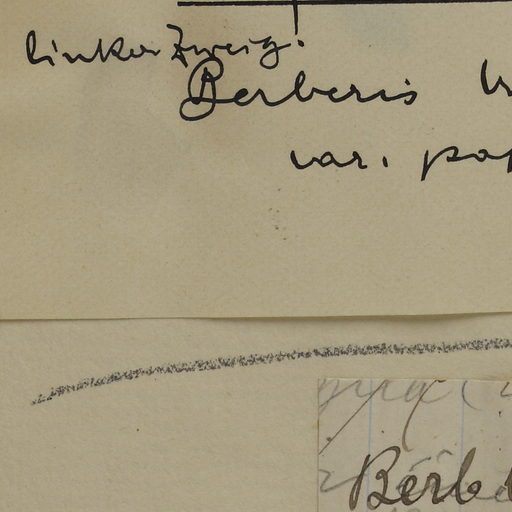 linker Zweig!
Berberis
var.
Berb